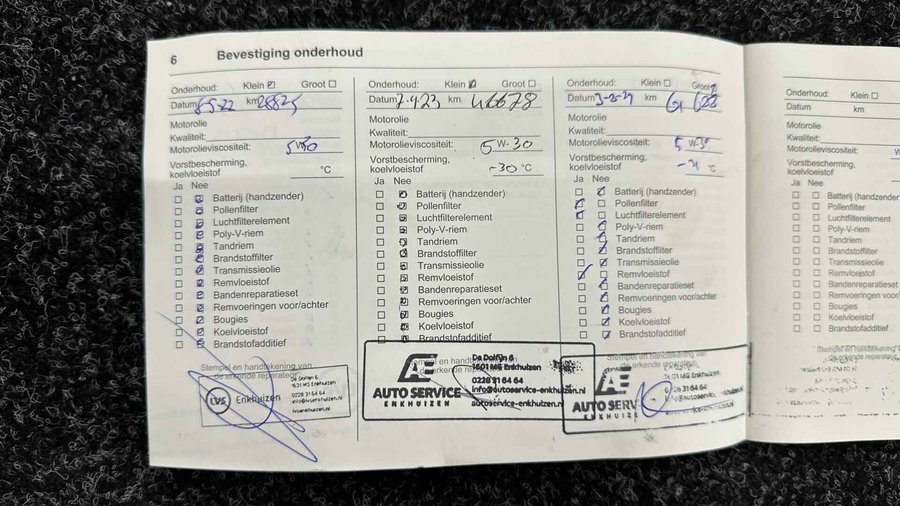 6 Bevestiging onderhoud
Onderhoud: Klein Groot
Datum 8-5-22 km 28825
Motorolie
Kwaliteit:
Motorolieviscositeit: 5W-30
Vorstbescherming,
koelvloeistof °C
Ja Nee
Batterij (handzender)
Pollenfilter
Luchtfilterelement
Poly-V-riem
Tandriem
Brandstoffilter
Transmissieolie
Remvloeistof
Bandenreparatieset
Remvoeringen voor/achter
Bougies
Koelvloeistof
Brandstofadditief
Stempel en handtekening van
de erkende reparateur
LVS Enkhuizen
De Dolfijn 6
1601 MG Enkhuizen
0228 31 64 64
info@lvsenkhuizen.nl
lvsenkhuizen.nl
Onderhoud: Klein Groot
Datum 7-4-23 km 46678
Motorolie
Kwaliteit:
Motorolieviscositeit: 5 W-30
Vorstbescherming,
koelvloeistof -30 °C
Ja Nee
Batterij (handzender)
Pollenfilter
Luchtfilterelement
Poly-V-riem
Tandriem
Brandstoffilter
Transmissieolie
Remvloeistof
Bandenreparatieset
Remvoeringen voor/achter
Bougies
Koelvloeistof
Brandstofadditief
Stempel en handt
erkende reparateur
AE
AUTO SERVICE
ENKHUIZEN
De Dolfijn 6
1601 MG Enkhuizen
0228 31 64 64
info@autoservice-enkhuizen.nl
autoservice-enkhuizen.nl
Onderhoud: Klein Groot
Datum km 61 628
Motorolie
Kwaliteit:
Motorolieviscositeit: 5 W-30
Vorstbescherming,
koelvloeistof °C
Ja Nee
Batterij (handzender)
Pollenfilter
Luchtfilterelement
Poly-V-riem
Tandriem
Brandstoffilter
Transmissieolie
Remvloeistof
Bandenreparatieset
Remvoeringen voor/achter
Bougies
Koelvloeistof
Brandstofadditief
Stempel en handtekening van
AE
AUTO SERV
ENKHUIZE
1601 MG Enkhuizen
31 64 64
Onderhoud: Klein
Datum km
Motorolie
Kwaliteit:
Motorolieviscositeit: W
Vorstbescherming,
koelvloeistof
Ja Nee
Batterij (handzender)
Pollenfilter
Luchtfilterelement
Poly-V-riem
Tandriem
Brandstoffilter
Transmissieolie
Remvloeistof
Bandenreparatieset
Remvoeringen voor/a
Bougies
Koelvloeistof
Brandstofadditief
Stempel en handtekening
de erkende reparateur